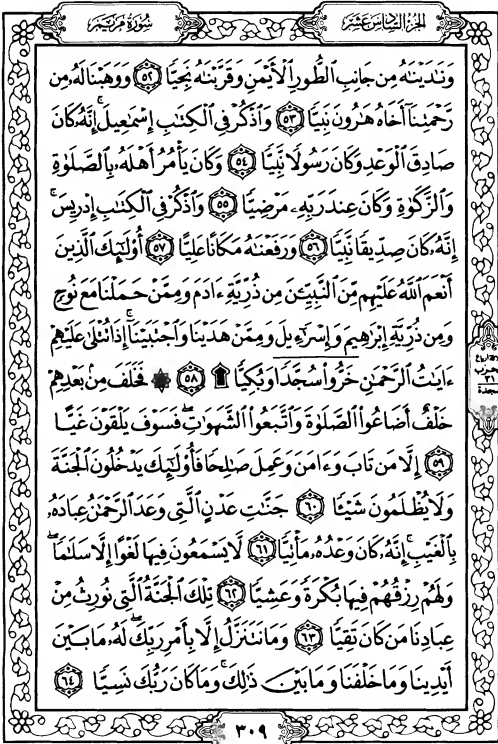 الجزء السادس عشر
سورة مريم
وَنَٰدَيْنَٰهُ مِن جَانِبِ ٱلطُّورِ ٱلْأَيْمَنِ وَقَرَّبْنَٰهُ نَجِيًّا ٥٢ وَوَهَبْنَا لَهُۥ مِن
رَّحْمَتِنَآ أَخَاهُ هَٰرُونَ نَبِيًّا ٥٣ وَٱذْكُرْ فِى ٱلْكِتَٰبِ إِسْمَٰعِيلَ ۚ إِنَّهُۥ كَانَ
صَادِقَ ٱلْوَعْدِ وَكَانَ رَسُولًا نَّبِيًّا ٥٤ وَكَانَ يَأْمُرُ أَهْلَهُۥ بِٱلصَّلَوٰةِ
وَٱلزَّكَوٰةِ وَكَانَ عِندَ رَبِّهِۦ مَرْضِيًّا ٥٥ وَٱذْكُرْ فِى ٱلْكِتَٰبِ إِدْرِيسَ ۚ
إِنَّهُۥ كَانَ صِدِّيقًا نَّبِيًّا ٥٦ وَرَفَعْنَٰهُ مَكَانًا عَلِيًّا ٥٧ أُو۟لَٰٓئِكَ ٱلَّذِينَ
أَنْعَمَ ٱللَّهُ عَلَيْهِم مِّنَ ٱلنَّبِيِّۦنَ مِن ذُرِّيَّةِ ءَادَمَ وَمِمَّنْ حَمَلْنَا مَعَ نُوحٍ
وَمِن ذُرِّيَّةِ إِبْرَٰهِيمَ وَإِسْرَٰٓءِيلَ وَمِمَّنْ هَدَيْنَا وَٱجْتَبَيْنَآ ۚ إِذَا تُتْلَىٰ عَلَيْهِمْ
ءَايَٰتُ ٱلرَّحْمَٰنِ خَرُّوا۟ سُجَّدًا وَبُكِيًّا ۩ ٥٨ ۞ فَخَلَفَ مِنۢ بَعْدِهِمْ
خَلْفٌ أَضَاعُوا۟ ٱلصَّلَوٰةَ وَٱتَّبَعُوا۟ ٱلشَّهَوَٰتِ ۖ فَسَوْفَ يَلْقَوْنَ غَيًّا
٥٩ إِلَّا مَن تَابَ وَءَامَنَ وَعَمِلَ صَٰلِحًا فَأُو۟لَٰٓئِكَ يَدْخُلُونَ ٱلْجَنَّةَ
وَلَا يُظْلَمُونَ شَيْـًٔا ٦٠ جَنَّٰتِ عَدْنٍ ٱلَّتِى وَعَدَ ٱلرَّحْمَٰنُ عِبَادَهُۥ
بِٱلْغَيْبِ ۚ إِنَّهُۥ كَانَ وَعْدُهُۥ مَأْتِيًّا ٦١ لَّا يَسْمَعُونَ فِيهَا لَغْوًا إِلَّا سَلَٰمًا ۖ
وَلَهُمْ رِزْقُهُمْ فِيهَا بُكْرَةً وَعَشِيًّا ٦٢ تِلْكَ ٱلْجَنَّةُ ٱلَّتِى نُورِثُ مِنْ
عِبَادِنَا مَن كَانَ تَقِيًّا ٦٣ وَمَا نَتَنَزَّلُ إِلَّا بِأَمْرِ رَبِّكَ ۖ لَهُۥ مَا بَيْنَ
أَيْدِينَا وَمَا خَلْفَنَا وَمَا بَيْنَ ذَٰلِكَ ۚ وَمَا كَانَ رَبُّكَ نَسِيًّا ٦٤
٣٠٩